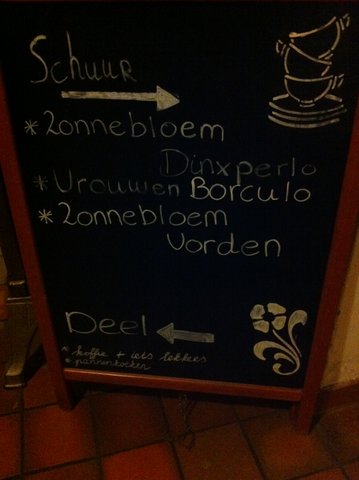 Schuur
* Zonnebloem
Dinxperlo
* Vrouwen Borculo
* Zonnebloem
Vorden
Deel
* koffie + iets lekkers
* pannenkoeken